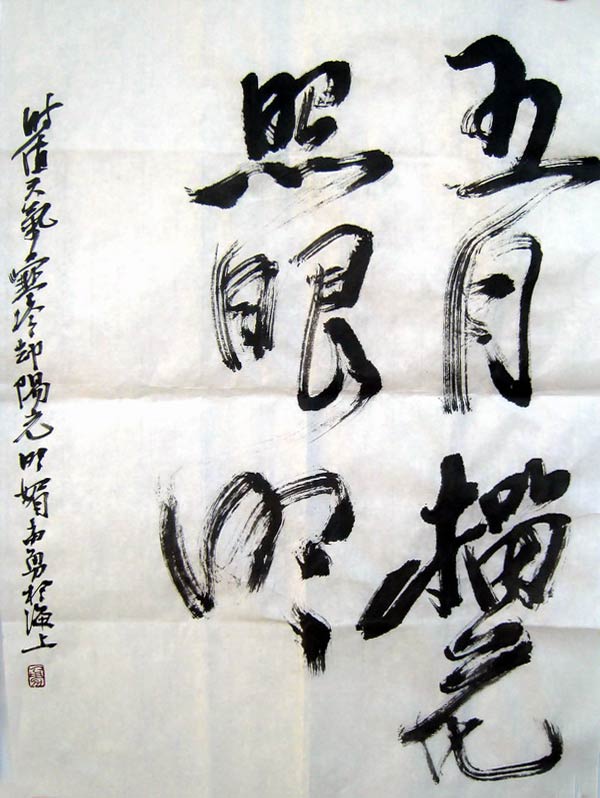 五月榴花
照眼明
时值天氣寒冷却陽光明媚勇於海上